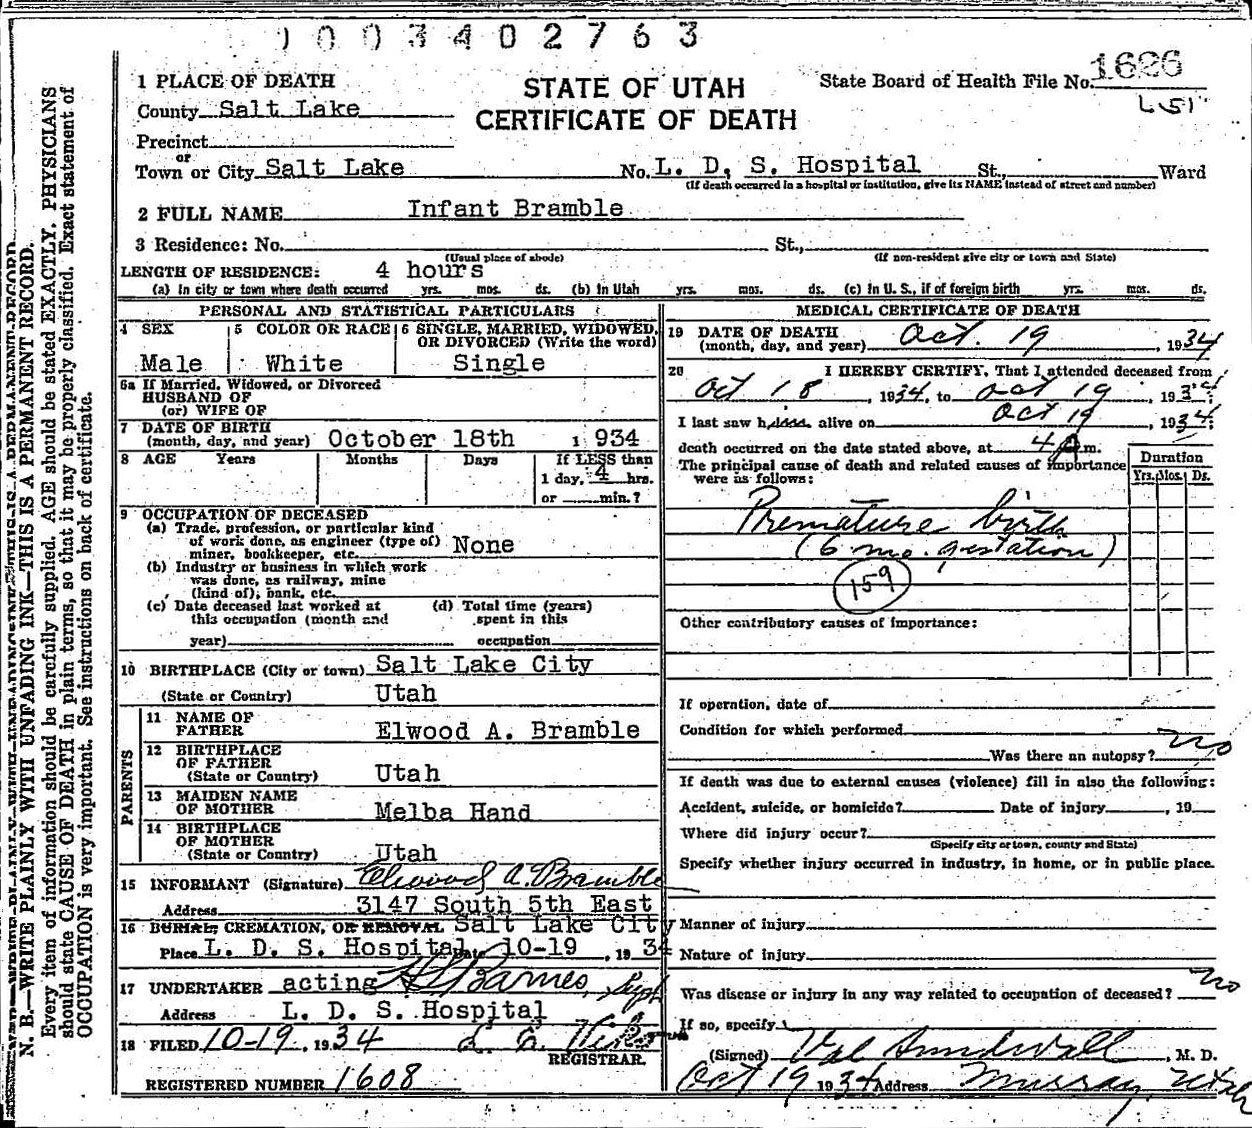 1003402763
1 PLACE OF DEATH
STATE OF UTAH
CERTIFICATE OF DEATH
State Board of Health File No. 1626
County Salt Lake
Precinct
or
Town or City Salt Lake No. L. D. S. Hospital St., Ward
(If death occurred in a hospital or institution, give its NAME instead of street and number)
2 FULL NAME Infant Bramble
3 Residence: No. St.,
(Usual place of abode) (If non-resident give city or town and State)
LENGTH OF RESIDENCE: 4 hours
(a) In city or town where death occurred yrs. mos. ds. (b) In Utah yrs. mos. ds. (c) In U. S., if of foreign birth yrs. mos. ds.
PERSONAL AND STATISTICAL PARTICULARS
4 SEX
Male
5 COLOR OR RACE
White
6 SINGLE, MARRIED, WIDOWED,
OR DIVORCED (Write the word)
Single
6a If Married, Widowed, or Divorced
HUSBAND OF
(or) WIFE OF
7 DATE OF BIRTH
(month, day, and year) October 18th 1934
8 AGE Years Months Days If LESS than
1 day, 4 hrs.
or min.?
9 OCCUPATION OF DECEASED
(a) Trade, profession, or particular kind
of work done, as engineer (type of)
miner, bookkeeper, etc. None
(b) Industry or business in which work
was done, as railway, mine
(kind of), bank, etc.
(c) Date deceased last worked at
this occupation (month and
year)
(d) Total time (years)
spent in this
occupation
10 BIRTHPLACE (City or town) Salt Lake City
(State or Country) Utah
PARENTS
11 NAME OF
FATHER Elwood A. Bramble
12 BIRTHPLACE
OF FATHER
(State or Country) Utah
13 MAIDEN NAME
OF MOTHER Melba Hand
14 BIRTHPLACE
OF MOTHER
(State or Country) Utah
15 INFORMANT (Signature) Elwood A. Bramble
Address 3147 South 5th East
16 BURIAL, CREMATION, OR REMOVAL Salt Lake City
Place L. D. S. Hospital Date 10-19, 1934
17 UNDERTAKER acting Barnes, Supt
Address L. D. S. Hospital
18 FILED 10-19, 1934
REGISTRAR.
REGISTERED NUMBER 1608
MEDICAL CERTIFICATE OF DEATH
19 DATE OF DEATH
(month, day, and year) Oct. 19, 1934
20 I HEREBY CERTIFY, That I attended deceased from
Oct 18, 1934, to Oct 19, 1934;
I last saw h alive on Oct 19, 1934;
death occurred on the date stated above, at 4 m.
The principal cause of death and related causes of importance
were as follows:
Duration
Yrs. Mos. Ds.
Premature birth
(6 mo. gestation)
159
Other contributory causes of importance:
If operation, date of
Condition for which performed
Was there an autopsy? no
If death was due to external causes (violence) fill in also the following:
Accident, suicide, or homicide? Date of injury, 19
Where did injury occur?
(Specify city or town, county and State)
Specify whether injury occurred in industry, in home, or in public place.
Manner of injury
Nature of injury
Was disease or injury in any way related to occupation of deceased? no
If so, specify
(Signed) Val Sundwall, M. D.
Oct 19 1934 Address Murray, Utah
N. B.—WRITE PLAINLY WITH UNFADING INK—THIS IS A PERMANENT RECORD.
Every item of information should be carefully supplied. AGE should be stated EXACTLY. PHYSICIANS
should state CAUSE OF DEATH in plain terms, so that it may be properly classified. Exact statement of
OCCUPATION is very important. See instructions on back of certificate.